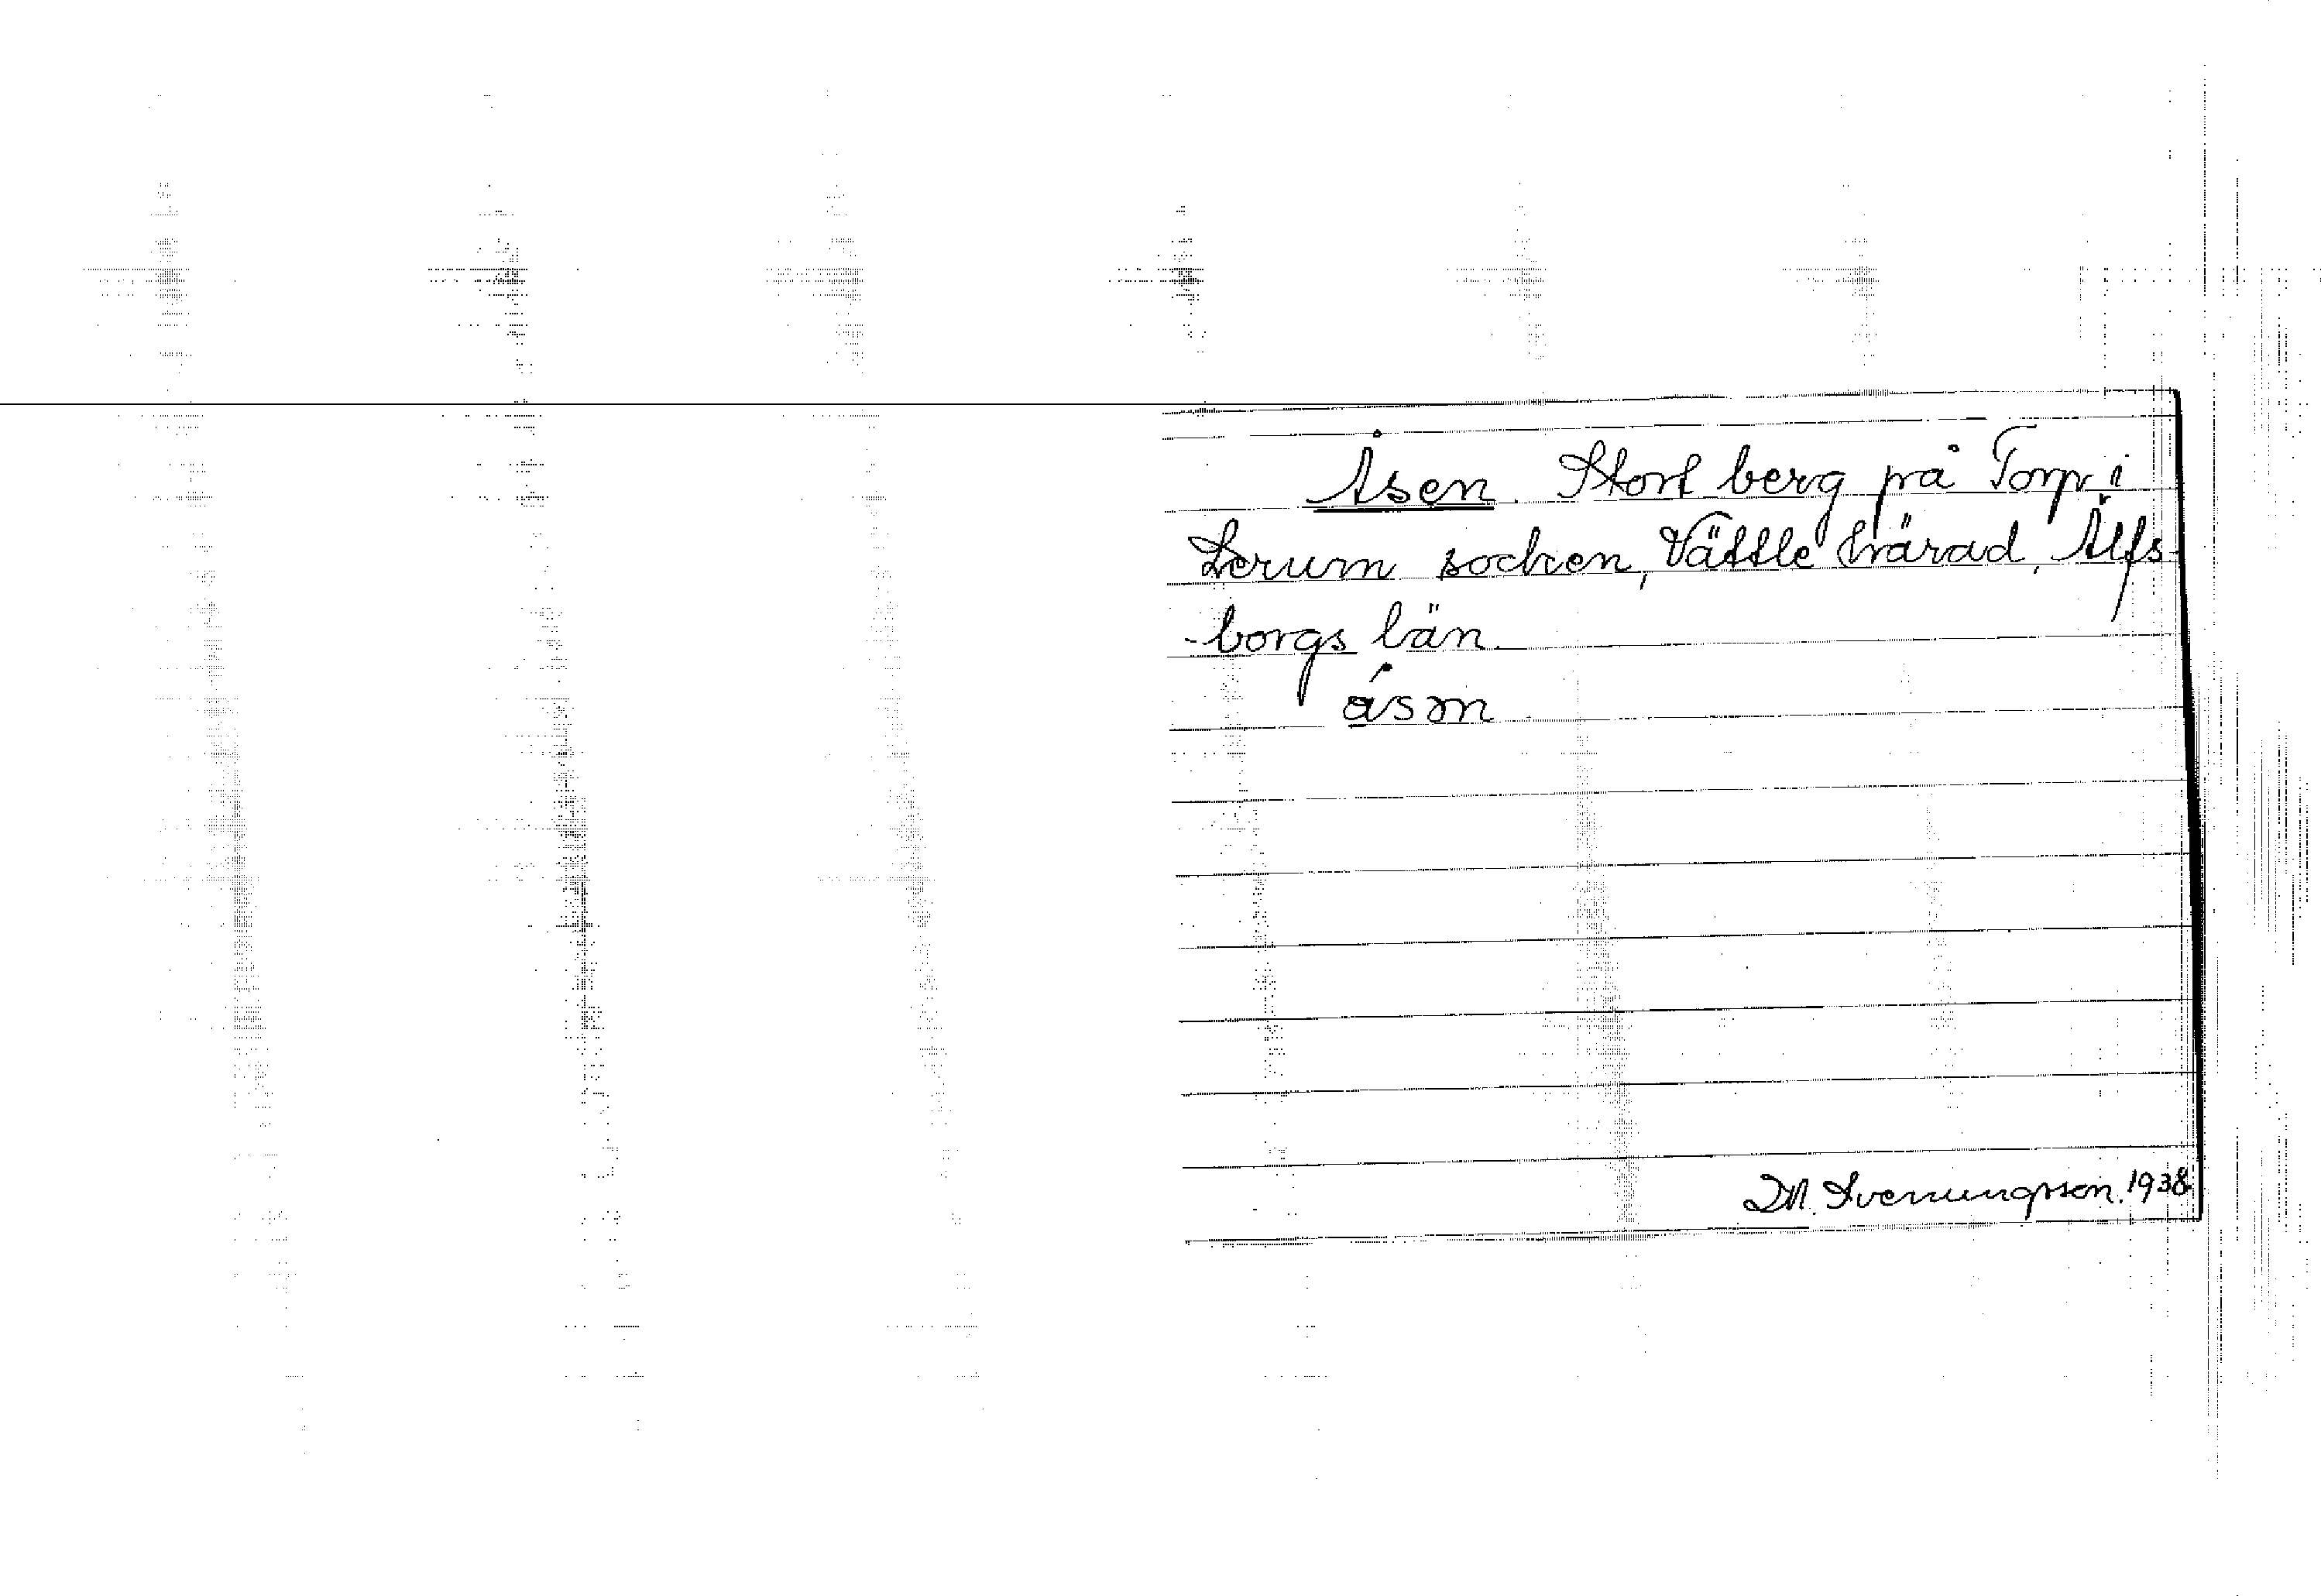 Åsen. Stort berg på Torp i
Lerum socken, Vättle härad, Älfs-
-borgs län.
åsən
D.M. Svenungsson. 1938